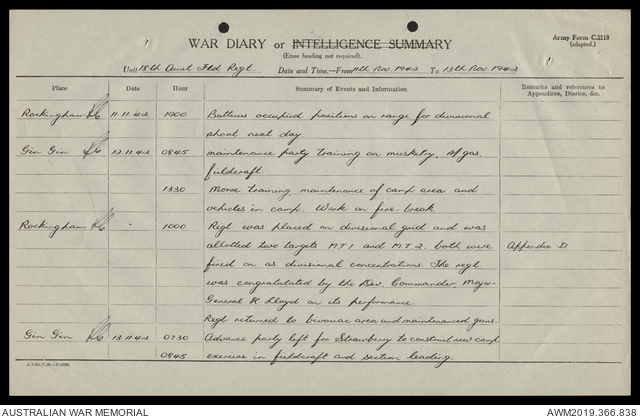 Army Form C.2118
(adapted.)
WAR DIARY or INTELLIGENCE SUMMARY
(Erase heading not required).
Unit 18th Aust Fld Regt. Date and Time.—From 11th Nov 1942 To 13th Nov 1942
Place Date Hour Summary of Events and Information Remarks and references to Appendices, Diaries, &c.
Rockingham 11.11.42 1900 Batteries occupied positions on range for divisional
shoot next day.
Gin Gin 12.11.42 0845 maintenance party training on musketry, A/gas,
fieldcraft.
1330 Morse training, maintenance of camp area and
vehicles in camp. Work on fire-break
Rockingham - 1000 Regt was placed on divisional grid and was
allotted two targets MT1 and M.T.2. both were Appendix D
fired on as divisional concentrations. The regt.
was congratulated by the Div. Commander, Major-
General H Lloyd on its performance.
Regt returned to bivouac area and maintenanced guns.
Gin Gin 13.11.42 0730 Advance party left for Strawberry to construct new camp
0845 exercise in fieldcraft and section leading.
AUSTRALIAN WAR MEMORIAL
AWM2019.366.838